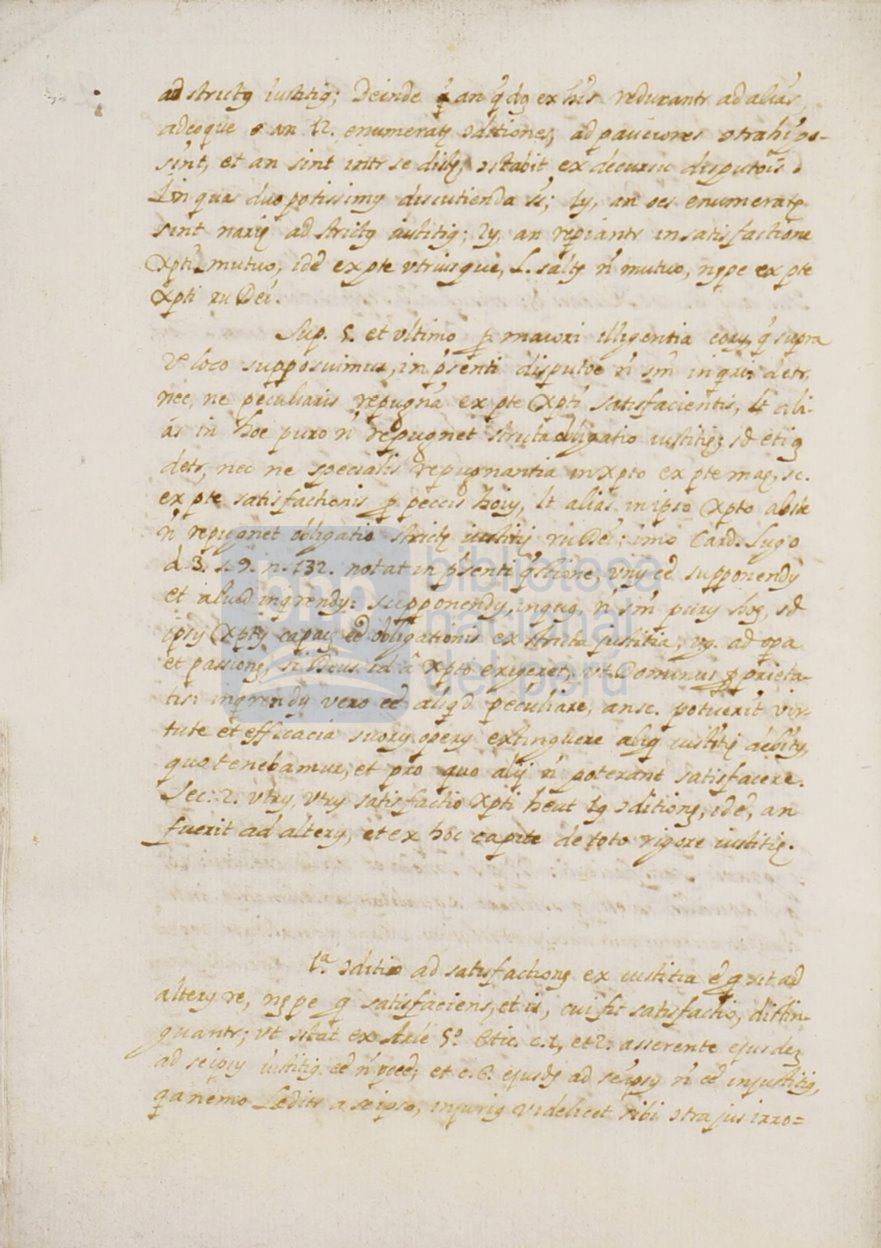 ad strictą iustitię; Deinde an qd̃ ex his reducantr ad alias,
adeoque an 12. enumeratę ↄditiones, ad pauciores ↄtrahi pos-
sint, et an sint intr se distę, ↄstabit ex decursu disputõis.
In qua duo potissimũ discutienda st; 1ų, an oẽs enumeratę
sint narię ad strictą iustitię; 2ų, an repiantr in satisfactione
Xpti mutuo, idẽ ex pte vtriusque, l. saltę ñ mutuo, nẽpe ex pte
Xpti ru Dei.
Sup. 5. et vltimo p maiori illigentia eorų, q̃ supra
vº loco supposuimus, in p̃senti disputõe ñ sm̃ inqrir detr,
nec, ne peculiaris repugña ex pte Xpti satisfacientis, lt ali-
ás in hoe puro ñ repugnet stricta obligatio iustitię; sd etią
detr, nec ne specialis repugnantia in Xpto ex pte maę, sc.
ex pte satisfactionis p peccis hoių, lt alias in ipso Xpto absᵉ
ñ repugnet obligatio strictę iustitię ru Dei: imo Card. Lugo
d. 3. s. 9. n. 132. notat in p̃senti q̃stione, vnų eẽ supponendų
et aliud inqrendų: supponendų, inquą, ñ sm̃ purų hoę, sd
ipsų Xptų capacę eẽ obligationis ex stricta justitia, vg. ad opa
et passionę, si Deus id â Xpto exigeret, vt Dominus pprieta-
tis: inqrendų vero eẽ aliqd peculiare, an sc. potuerit vir-
tute et efficacia suorų operų extinguere aliq iustitię debitų,
quo tenebamur, et pro quo alij ñ poterant satisfacere.
Sec. 2. vtrų, vtrų satisfactio Xpti heat 1ą ↄditionę, idẽ, an
fuerit ad alterų, et ex hoc capite de toto rigore iustitię.
1ª. ↄditio ad satisfactionę ex iustitia ẽ q̃ sit ad
alterų re, nẽpe q̃ satisfaciens, et is, cui fit satisfactio, distin-
guantr; vt ↄstat ex Arłe 5º Etic. c. 1, et 2. asserente ejusdẽ
ad seipsų iustitię eẽ ñ posse; et c. 6. ejusdę ad seipsų ñ eẽ injustitię,
qa nemo læditr a seipso, injurię videlicet sibi ↄtra jus irro=